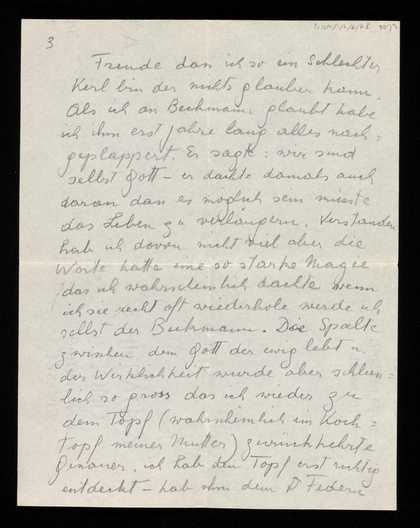 3
Freude dan ich so ein Schlechter
Kerl bin der nichts glauben kann.
Als ich an Beckmann glaubt habe
ich ihm erst Jahre lang alles nach=
geplappert. Er sagte: wir sind
selbst Gott – er dachte damals auch
daran dan es möglich sein müsste
das Leben zu verlängern. Verstanden
hab ich davon nicht viel aber die
Worte hatte eine so starke Magie
das ich wahrscheinlich dachte wenn
ich sie recht oft wiederhole werde ich
selbst der Beckmann. Die Spalte
zwischen dem Gott der ewig lebt u.
der Wirklichkeit wurde aber schliess=
lich so gross das ich wieder zu
dem Topf (wahrscheinlich im Koch=
topf meiner Mutter) zurückkehrte
Genauer, ich hab den Topf erst richtig
entdeckt – hab ihn dem D Federn